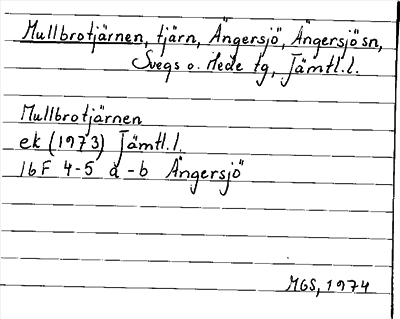 Mullbrotjärnen, tjärn, Ängersjö, Ängersjö sn,
Svegs o. Hede tg, Jämtl.l.
Mullbrotjärnen
ek (1973) Jämtl.l.
16F 4-5 a-b Ängersjö
MGS, 1974